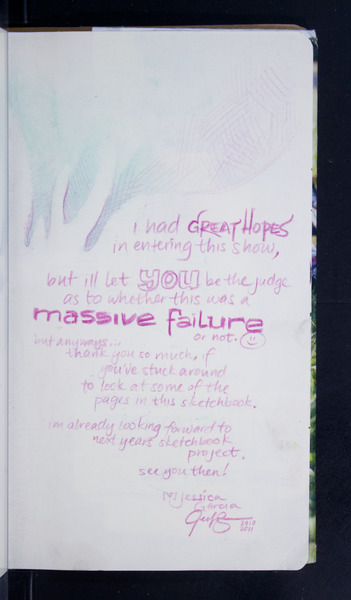 i had GREAT HOPES
in entering this show,
but ill let YOU be the judge
as to whether this was a
massive failure
or not.
but anyways...
thank you so much, if
you've stuck around
to look at some of the
pages in this sketchbook.
im already looking forward to
next years sketchbook
project.
see you then!
jessica
Garcia
2010
2011